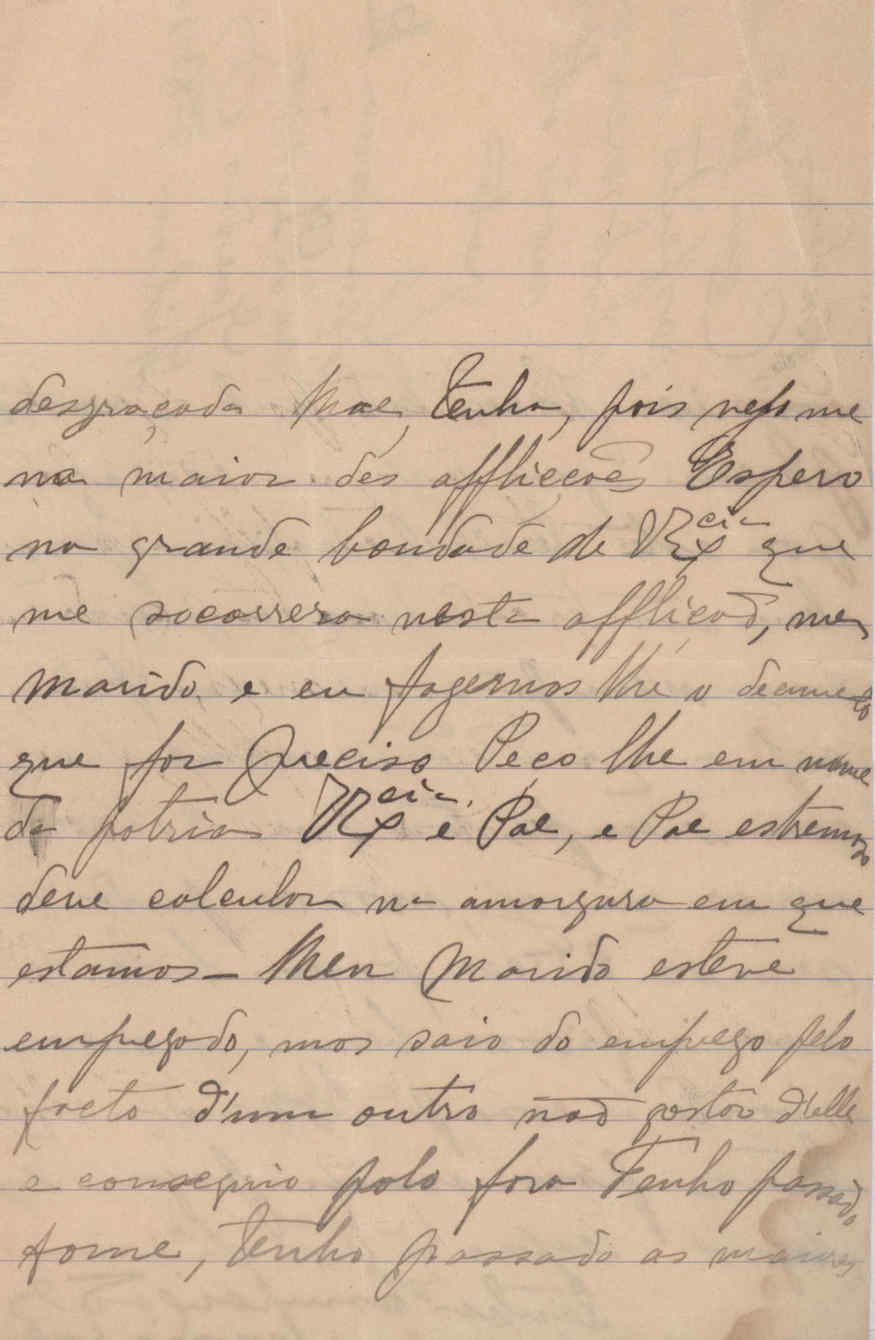 desgraçada Mae, tenha, pois vejo me
na maior des afflicções Espero
na grande bondade de V Ex.cia que
me socorrera nesta afflição, meu
marido e eu fazemos lhe o
que for preciso Peço lhe em nome
da patria V Ex.cia é Pae, e Pae estremoso
deve calcular na amargura em que
estamos – Meu Marido esteve
empregado, mas saio do emprego pelo
facto d'um outro não gostar d'elle
e conseguio polo fora Tenho passado
fome, tenho passado as maiores